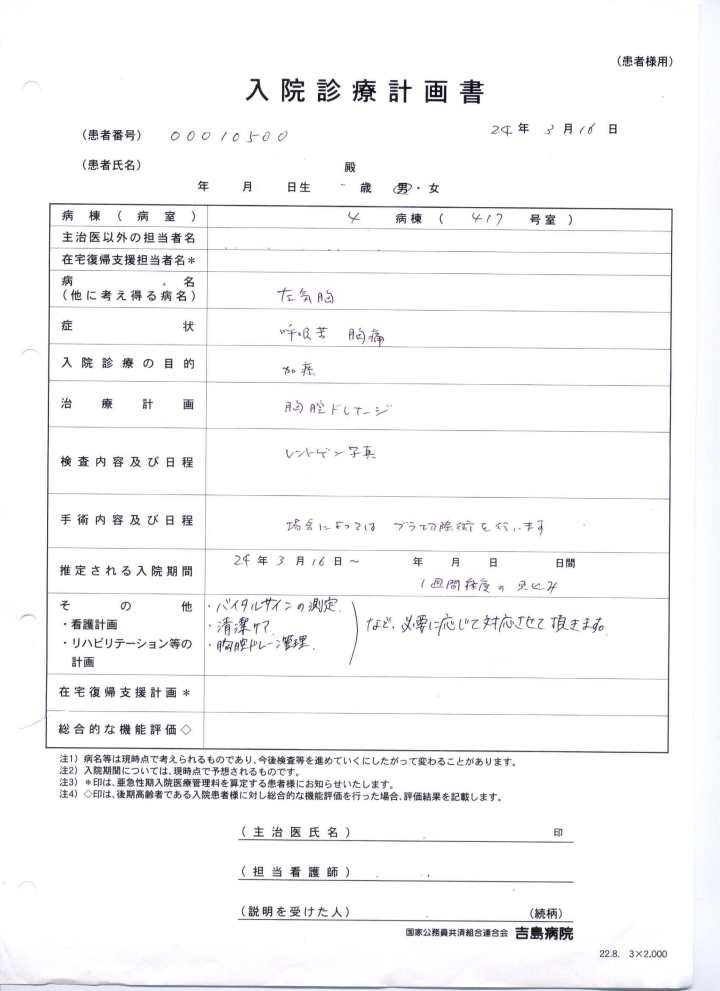 (患者様用)
入院診療計画書
(患者番号) 00010500 24年3月16日
(患者氏名) 殿
年 月 日生 歳 男・女
病棟(病室) 4 病棟( 417 号室)
主治医以外の担当者名
在宅復帰支援担当者名*
病名
(他に考え得る病名) 左気胸
症状 呼吸苦 胸痛
入院診療の目的 加療
治療計画 胸腔ドレナージ
検査内容及び日程 レントゲン写真
手術内容及び日程 場合によってはブラ切除術を行います
推定される入院期間 24年3月16日~ 年 月 日 日間
1週間程度の見込み
その他 ・バイタルサインの測定.
・看護計画 ・清潔ケア. など、必要に応じて対応させて頂きます。
・リハビリテーション等の ・胸腔ドレーン管理.
計画
在宅復帰支援計画*
総合的な機能評価◇
注1)病名等は現時点で考えられるものであり、今後検査等を進めていくにしたがって変わることがあります。
注2)入院期間については、現時点で予想されるものです。
注3)*印は、亜急性期入院医療管理料を算定する患者様にお知らせいたします。
注4)◇印は、後期高齢者である入院患者様に対し総合的な機能評価を行った場合、評価結果を記載します。
(主治医氏名) 印
(担当看護師)
(説明を受けた人) (続柄)
国家公務員共済組合連合会 吉島病院
22.8. 3×2.000